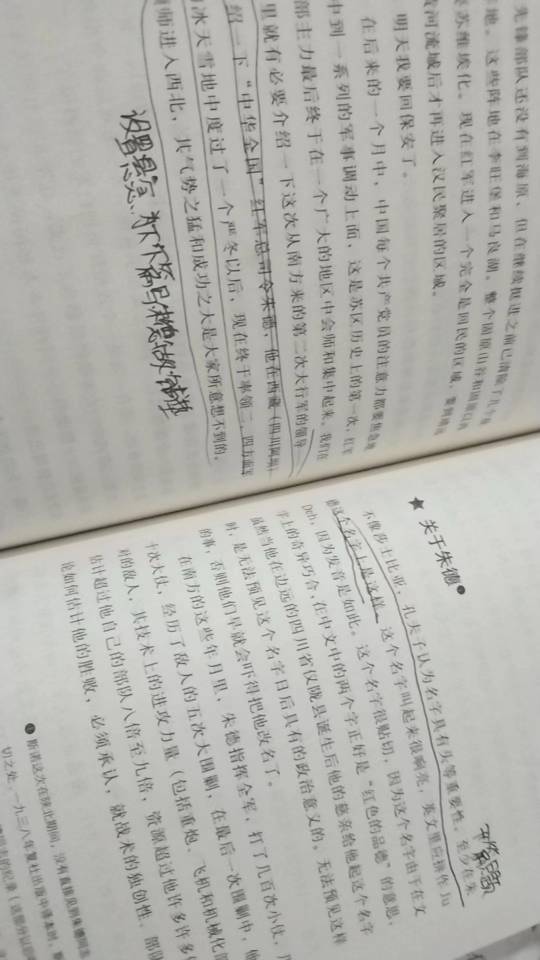 先锋部队还没有到海原，但在继续推进之前已清除了几个
阵地。这些阵地在李旺堡和马良湖。整个固原山谷和固原以西
苏维埃化。现在红军进入一个完全是回民的区域，要到
黄河流域后才再进入汉民聚居的区域。
明天我要回保安了。
在后来的一个月中，中国每个共产党员的注意力都要焦急地
中到一系列的军事调动上面，这是苏区历史上的第一次，红军
部主力最后终于在一个广大的地区中会师和集中起来。我们在
里就有必要介绍一下这次从南方来的第二次大行军的领导
绍一下“中华全国”红军总司令朱德，他在西藏（四川阿坝）
冰天雪地中度过了一个严冬以后，现在终于率领二、四方面军
师进入西北，其气势之猛和成功之大是大家所意想不到的。
设置悬念，为下个
★ 关于朱德❶
不像莎士比亚，孔夫子认为名字具有头等重要性。至少在朱
德这个名字上是这样。这个名字叫起来很响亮，英文里应拼作Ju
Deh，因为发音是如此。这个名字很贴切，因为这个名字由于在文
字上的奇异巧合，在中文中的两个字正好是“红色的品德”的意思，
虽然当他在边远的四川省仪陇县诞生后他的慈亲给他起这个名字
时，是无法预见这个名字日后具有的政治意义的，无法预见这样
的事，否则他们早就会吓得把他改名了。
在南方的这些年月里，朱德指挥全军，打了几百次小仗，几
十次大仗，经历了敌人的五次大围剿，在最后一次围剿中，他
对的敌人，其技术上的进攻力量（包括重炮、飞机和机械化部
估计超过他自己的部队八倍至九倍，资源超过他许多许多
论如何估计他的胜败，必须承认，就战术的独创性、部队
❶ 斯诺这次在陕北期间，没有直接见到朱德同志
切之处。一九三八年复社出版中译本时，斯